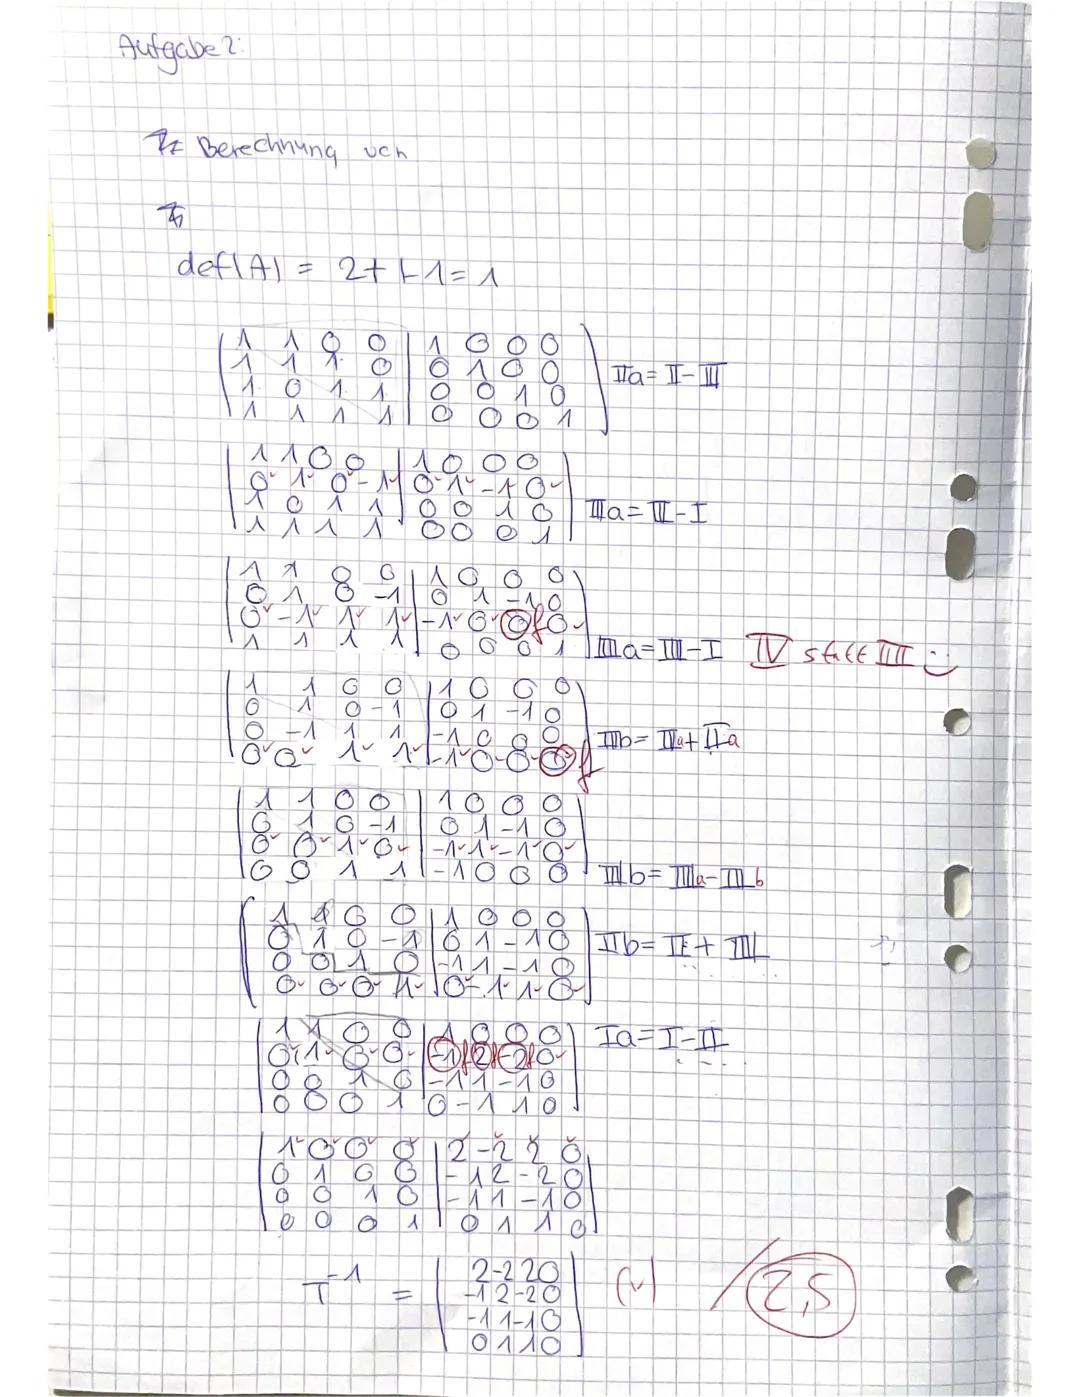 Aufgabe 2:
Berechnung von
def(A) = 2+ + 1 = 1
1 1 0 0 | 1 0 0 0
1 1 1 0 | 0 1 0 0 IIa = II - III
1 0 1 1 | 0 0 1 0
1 1 1 1 | 0 0 0 1
1 1 0 0 | 1 0 0 0
0 1 0 -1 | 0 1 -1 0
1 0 1 1 | 0 0 1 0 IIIa = III - I
1 1 1 1 | 0 0 0 1
1 1 0 0 | 1 0 0 0
0 1 0 -1 | 0 1 -1 0
0 -1 1 1 | -1 0 0 f 0
1 1 1 1 | 0 0 0 1 IIIIa = III - I IV statt III
1 1 0 0 | 1 0 0 0
0 1 0 -1 | 0 1 -1 0
0 -1 1 1 | -1 0 0 0 IIIb = IIIa + IIa
0 0 1 1 | -1 0 0 0 f
1 1 0 0 | 1 0 0 0
0 1 0 -1 | 0 1 -1 0
0 0 1 0 | -1 1 -1 0
0 0 1 1 | -1 0 0 0 IIIIb = IIIIa - IIIb
1 1 0 0 | 1 0 0 0
0 1 0 -1 | 0 1 -1 0 IIb = II + IIII
0 0 1 0 | -1 1 -1 0
0 0 0 1 | 0 -1 1 0
1 1 0 0 | 1 0 0 0 Ia = I - II
0 1 0 0 | -1 f 2 f -2 f 0
0 0 1 0 | -1 1 -1 0
0 0 0 1 | 0 -1 1 0
1 0 0 0 | 2 -2 2 0
0 1 0 0 | -1 2 -2 0
0 0 1 0 | -1 1 -1 0
0 0 0 1 | 0 1 1 0
T⁻¹ = 2 -2 2 0 (✓) / 2,5
-1 2 -2 0
-1 1 -1 0
0 1 1 0